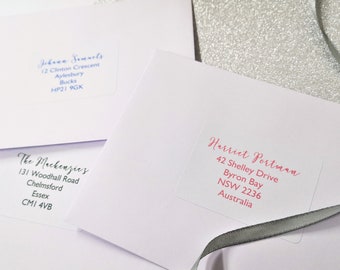 Johann Samuels
12 Clinton Crescent
Aylesbury
Bucks
HP21 9GK
The Mackenzies
131 Woodhall Road
Chelmsford
Essex
CM1 4VB
Harriet Portman
42 Shelley Drive
Byron Bay
NSW 2236
Australia